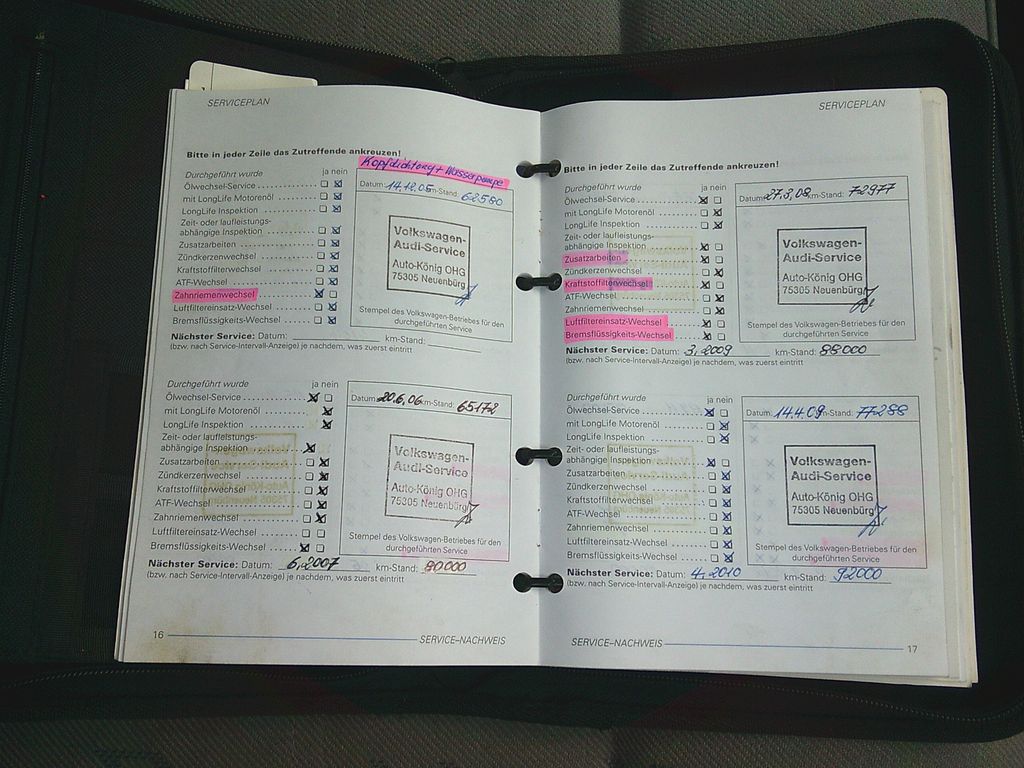 SERVICEPLAN
Bitte in jeder Zeile das Zutreffende ankreuzen!
Kopfdichtung + Wasserpumpe
Durchgeführt wurde ja nein
Ölwechsel-Service
mit LongLife Motorenöl
LongLife Inspektion
Zeit- oder laufleistungs-
abhängige Inspektion
Zusatzarbeiten
Zündkerzenwechsel
Kraftstofffilterwechsel
ATF-Wechsel
Zahnriemenwechsel
Luftfiltereinsatz-Wechsel
Bremsflüssigkeits-Wechsel
Datum: 14.12.05 km-Stand: 62580
Volkswagen-
Audi-Service
Auto-König OHG
75305 Neuenbürg
Stempel des Volkswagen-Betriebes für den
durchgeführten Service
Nächster Service: Datum: km-Stand:
(bzw. nach Service-Intervall-Anzeige) je nachdem, was zuerst eintritt
Durchgeführt wurde ja nein
Ölwechsel-Service
mit LongLife Motorenöl
LongLife Inspektion
Zeit- oder laufleistungs-
abhängige Inspektion
Zusatzarbeiten
Zündkerzenwechsel
Kraftstofffilterwechsel
ATF-Wechsel
Zahnriemenwechsel
Luftfiltereinsatz-Wechsel
Bremsflüssigkeits-Wechsel
Datum: 20.6.06 km-Stand: 65172
Volkswagen-
Audi-Service
Auto-König OHG
75305 Neuenbürg
Stempel des Volkswagen-Betriebes für den
durchgeführten Service
Nächster Service: Datum: 6.2007 km-Stand: 80000
(bzw. nach Service-Intervall-Anzeige) je nachdem, was zuerst eintritt
16
SERVICE–NACHWEIS
SERVICEPLAN
Bitte in jeder Zeile das Zutreffende ankreuzen!
Durchgeführt wurde ja nein
Ölwechsel-Service
mit LongLife Motorenöl
LongLife Inspektion
Zeit- oder laufleistungs-
abhängige Inspektion
Zusatzarbeiten
Zündkerzenwechsel
Kraftstofffilterwechsel
ATF-Wechsel
Zahnriemenwechsel
Luftfiltereinsatz-Wechsel
Bremsflüssigkeits-Wechsel
Datum: 27.3.08 km-Stand: 72977
Volkswagen-
Audi-Service
Auto-König OHG
75305 Neuenbürg
Stempel des Volkswagen-Betriebes für den
durchgeführten Service
Nächster Service: Datum: 3.2009 km-Stand: 88000
(bzw. nach Service-Intervall-Anzeige) je nachdem, was zuerst eintritt
Durchgeführt wurde ja nein
Ölwechsel-Service
mit LongLife Motorenöl
LongLife Inspektion
Zeit- oder laufleistungs-
abhängige Inspektion
Zusatzarbeiten
Zündkerzenwechsel
Kraftstofffilterwechsel
ATF-Wechsel
Zahnriemenwechsel
Luftfiltereinsatz-Wechsel
Bremsflüssigkeits-Wechsel
Datum: 14.4.09 km-Stand: 77288
Volkswagen-
Audi-Service
Auto-König OHG
75305 Neuenbürg
Stempel des Volkswagen-Betriebes für den
durchgeführten Service
Nächster Service: Datum: 4.2010 km-Stand: 92000
(bzw. nach Service-Intervall-Anzeige) je nachdem, was zuerst eintritt
SERVICE–NACHWEIS
17